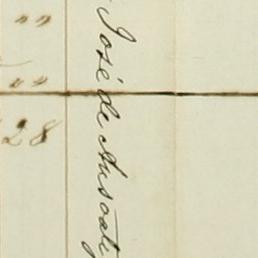 " "
" "
28
José de Ansoate